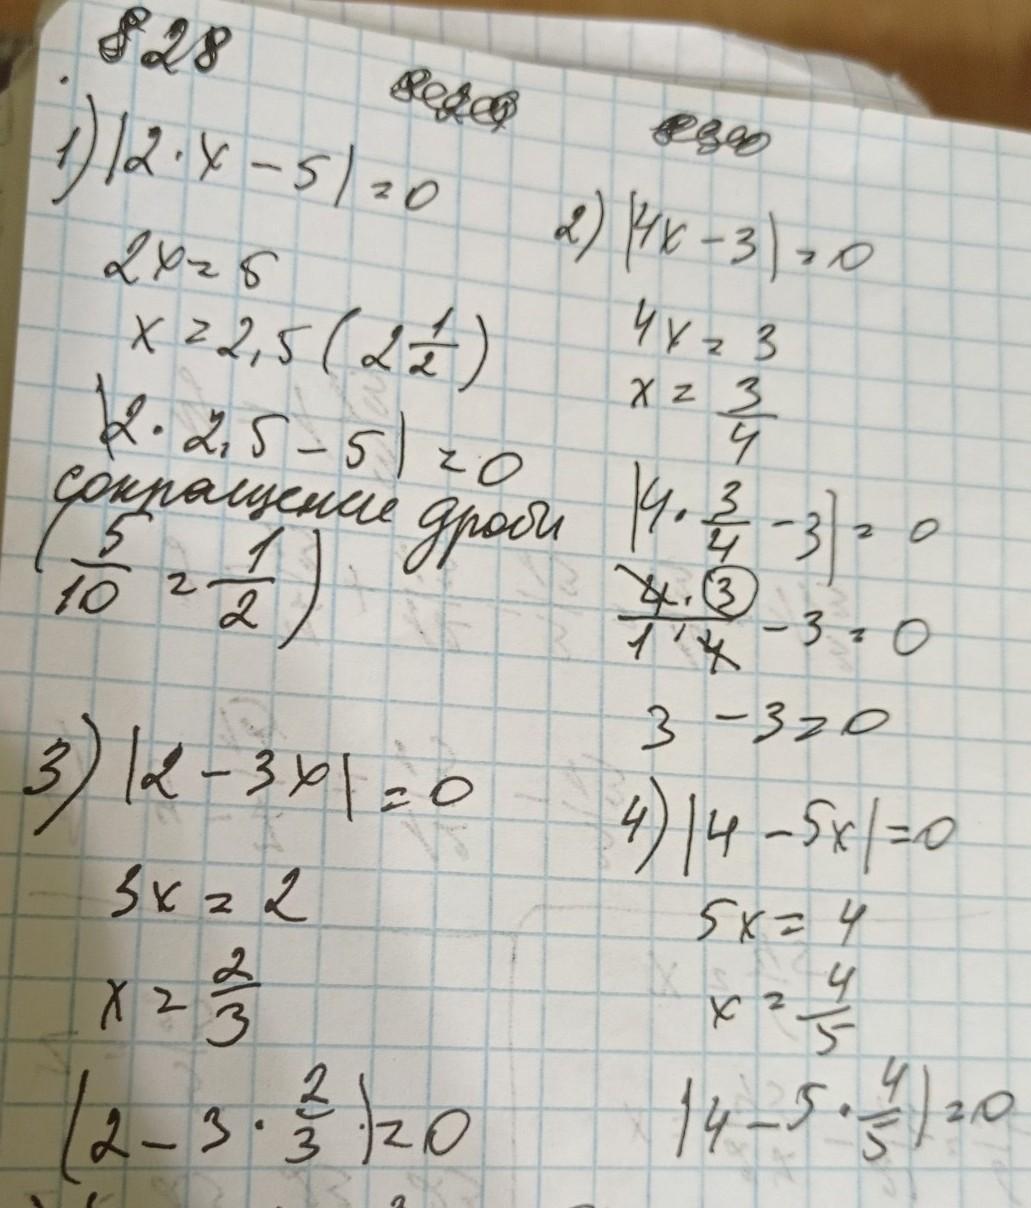 828
1) |2 · x - 5| = 0
2x = 5
x = 2,5 (2 1/2)
|2 · 2,5 - 5| = 0
сокращение дроби
(5/10 = 1/2)
2) |4x - 3| = 0
4x = 3
x = 3/4
|4 · 3/4 - 3| = 0
4 · 3 / 1 · 4 - 3 = 0
3 - 3 = 0
3) |2 - 3x| = 0
3x = 2
x = 2/3
|2 - 3 · 2/3| = 0
4) |4 - 5x| = 0
5x = 4
x = 4/5
|4 - 5 · 4/5| = 0